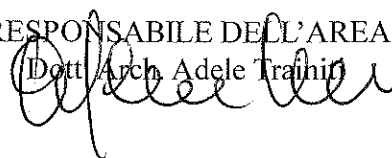 RESPONSABILE DELL'AREA
(Dott. Arch. Adele Trainiti)